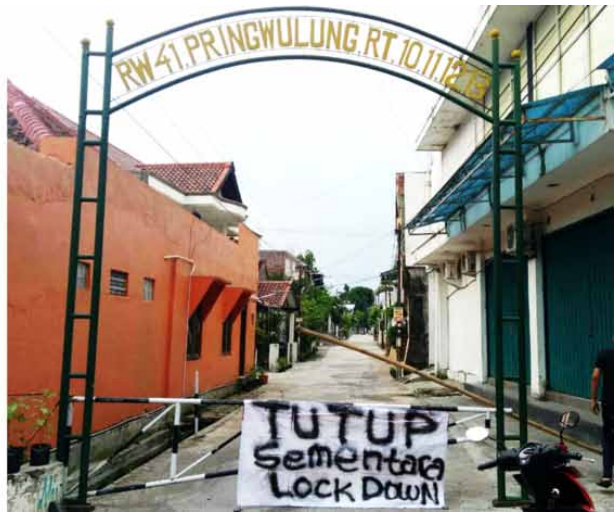 RW 41.PRINGWULUNG.RT.10.11.12.13
TUTUP
Sementara
LOCK DOWN